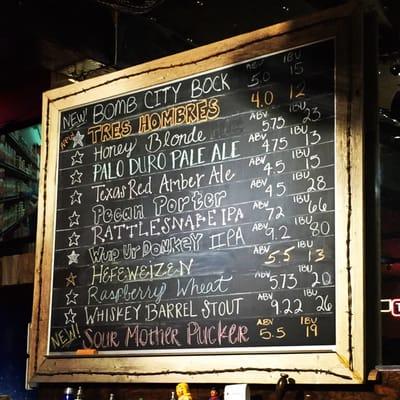 NEW! BOMB CITY BOCK ABV 5.0 IBU 15
TRES HOMBRES 4.0 12
Honey Blonde ABV 5.75 IBU 23
PALO DURO PALE ALE ABV 4.75 IBU 13
Texas Red Amber Ale ABV 4.5 IBU 15
Pecan Porter ABV 4.5 IBU 28
RATTLESNAKE IPA ABV 7.2 IBU 66
Up DONKEY IIPA ABV 9.2 IBU 80
HEFEWEIZEN ABV 5.5 IBU 13
Raspberry Wheat ABV 5.73 IBU 20
WHISKEY BARREL STOUT ABV 9.22 IBU 26
NEW! SOUR MOTHER PUCKER ABV 5.5 IBU 19